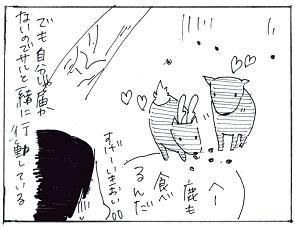 へー
鹿も
食べ
るんだ
すげーいきおい。。
でも自分じゃ届か
ないのでサルと一緒に行動している